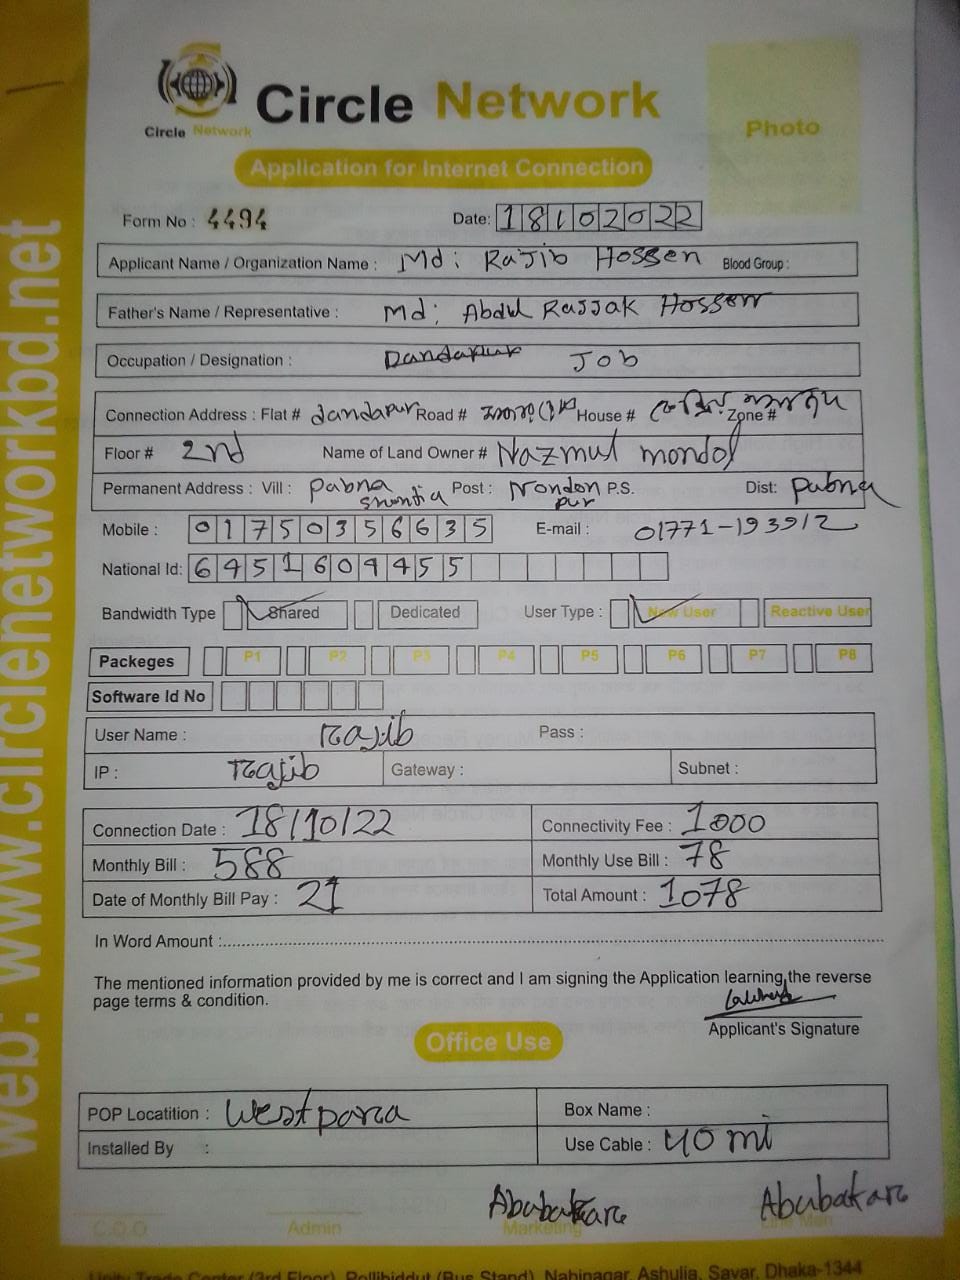 Circle Network
Circle Network
Photo
Application for Internet Connection
web: www.circlenetworkbd.net
Form No : 4494 Date: 18102022
Applicant Name / Organization Name : Md: Rajib Hossen Blood Group :
Father's Name / Representative : Md: Abdul Rajjak Hossen
Occupation / Designation : Dandapur Job
Connection Address : Flat # dandapur Road # House # Zone #
Floor # 2nd Name of Land Owner # Nazmul mondol
Permanent Address : Vill : Pabna Post : Nondon pur P.S. Dist: Pabna
Mobile : 01750356635 E-mail : 01771-193912
National Id: 6451604455
Bandwidth Type Shared Dedicated User Type : New User Reactive User
Packeges P1 P2 P3 P4 P5 P6 P7 P8
Software Id No
User Name : Rajib Pass :
IP : Rajib Gateway : Subnet :
Connection Date : 18/10/22 Connectivity Fee : 1000
Monthly Bill : 588 Monthly Use Bill : 78
Date of Monthly Bill Pay : 21 Total Amount : 1078
In Word Amount :
The mentioned information provided by me is correct and I am signing the Application learning the reverse
page terms & condition.
Applicant's Signature
Office Use
POP Locatition : Westpara Box Name :
Installed By : Use Cable : 40 mi
Abubakare Abubakare
C.O.O Admin Marketing Line Man
Unity Trade Center (3rd Floor), Pollibiddut (Bus Stand), Nabinagar, Ashulia, Savar, Dhaka-1344